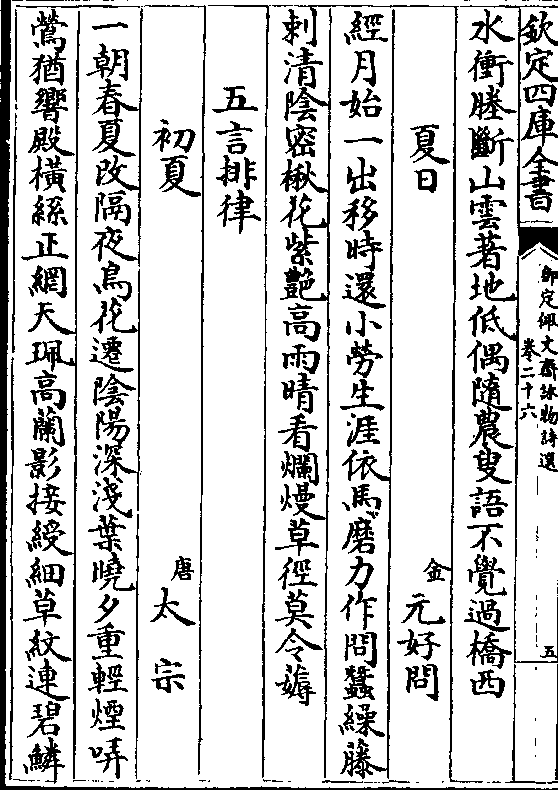 欽定四庫全書
御定佩文齋詠物詩選
卷二十六
五
水衝塍斷山雲著地低偶隨農叟語不覺過橋西
夏日
金 元好問
經月始一出移時還小勞生涯依馬磨力作問蠶繰藤
刺清陰密楸花紫艷高雨晴看爛熳草徑莫令薅
五言排律
初夏
唐 太宗
一朝春夏改隔夜鳥花遷陰陽深淺葉曉夕重輕煙哢
鶯猶響殿橫絲正網天珮高蘭影接綬細草紋連碧鱗